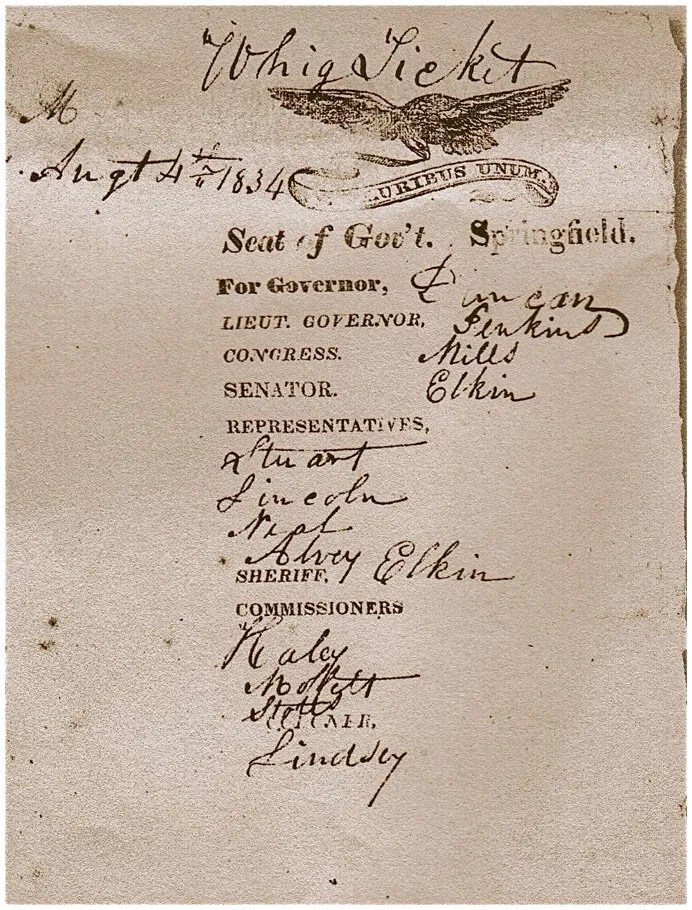 Whig Ticket
M
Augt 4th 1834
URIBUS UNUM.
Seat of Gov't. Springfield.
For Governor, Duncan
LIEUT. GOVERNOR, Jenkins
CONGRESS. Mills
SENATOR. Elkin
REPRESENTATIVES,
Stuart
Lincoln
Neal
Alvey
SHERIFF, Elkin
COMMISSIONERS
Haley
Moffett
Stotts
Lindsey